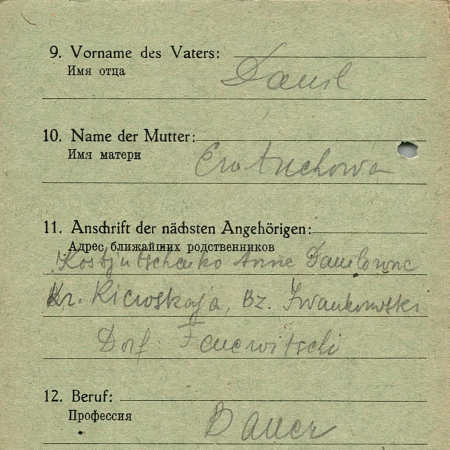 9. Vorname des Vaters:
Имя отца
Danil
10. Name der Mutter:
Имя матери
11. Anschrift der nächsten Angehörigen:
Адрес ближайших родственников
Kostjutschenko Anne Danilowne
Kr. Kiewskaja, Bz. Iwankowski
Dorf Fenewitschi
12. Beruf:
Профессия
Bauer